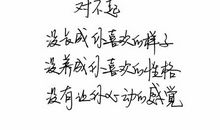 对不起
没长成你喜欢的样子
没养成你喜欢的性格
没有让你心动的感觉